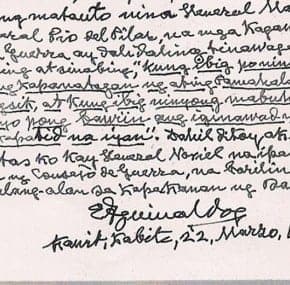 ng matauto nina General Ma
eral Pio del Pilar, na mga Kagaw
Guerra ay dalidaling tinawag
ing at sinabing, "Kung ibig po ninyo
ng Kapanatagan ng ating Pamahala
gsik, at Kung ibig ninyong mabuh
yo pong bawiin ang iginawad n
Kapatid na iyan". Dahil dito'y ak
tas ko kay General Noriel na ipa
ng Consejo de Guerra, na barilin
alang-alan sa kapakanan ng Ba
EAguinaldo
Kawit, Kabite, 22, Marzo, 1